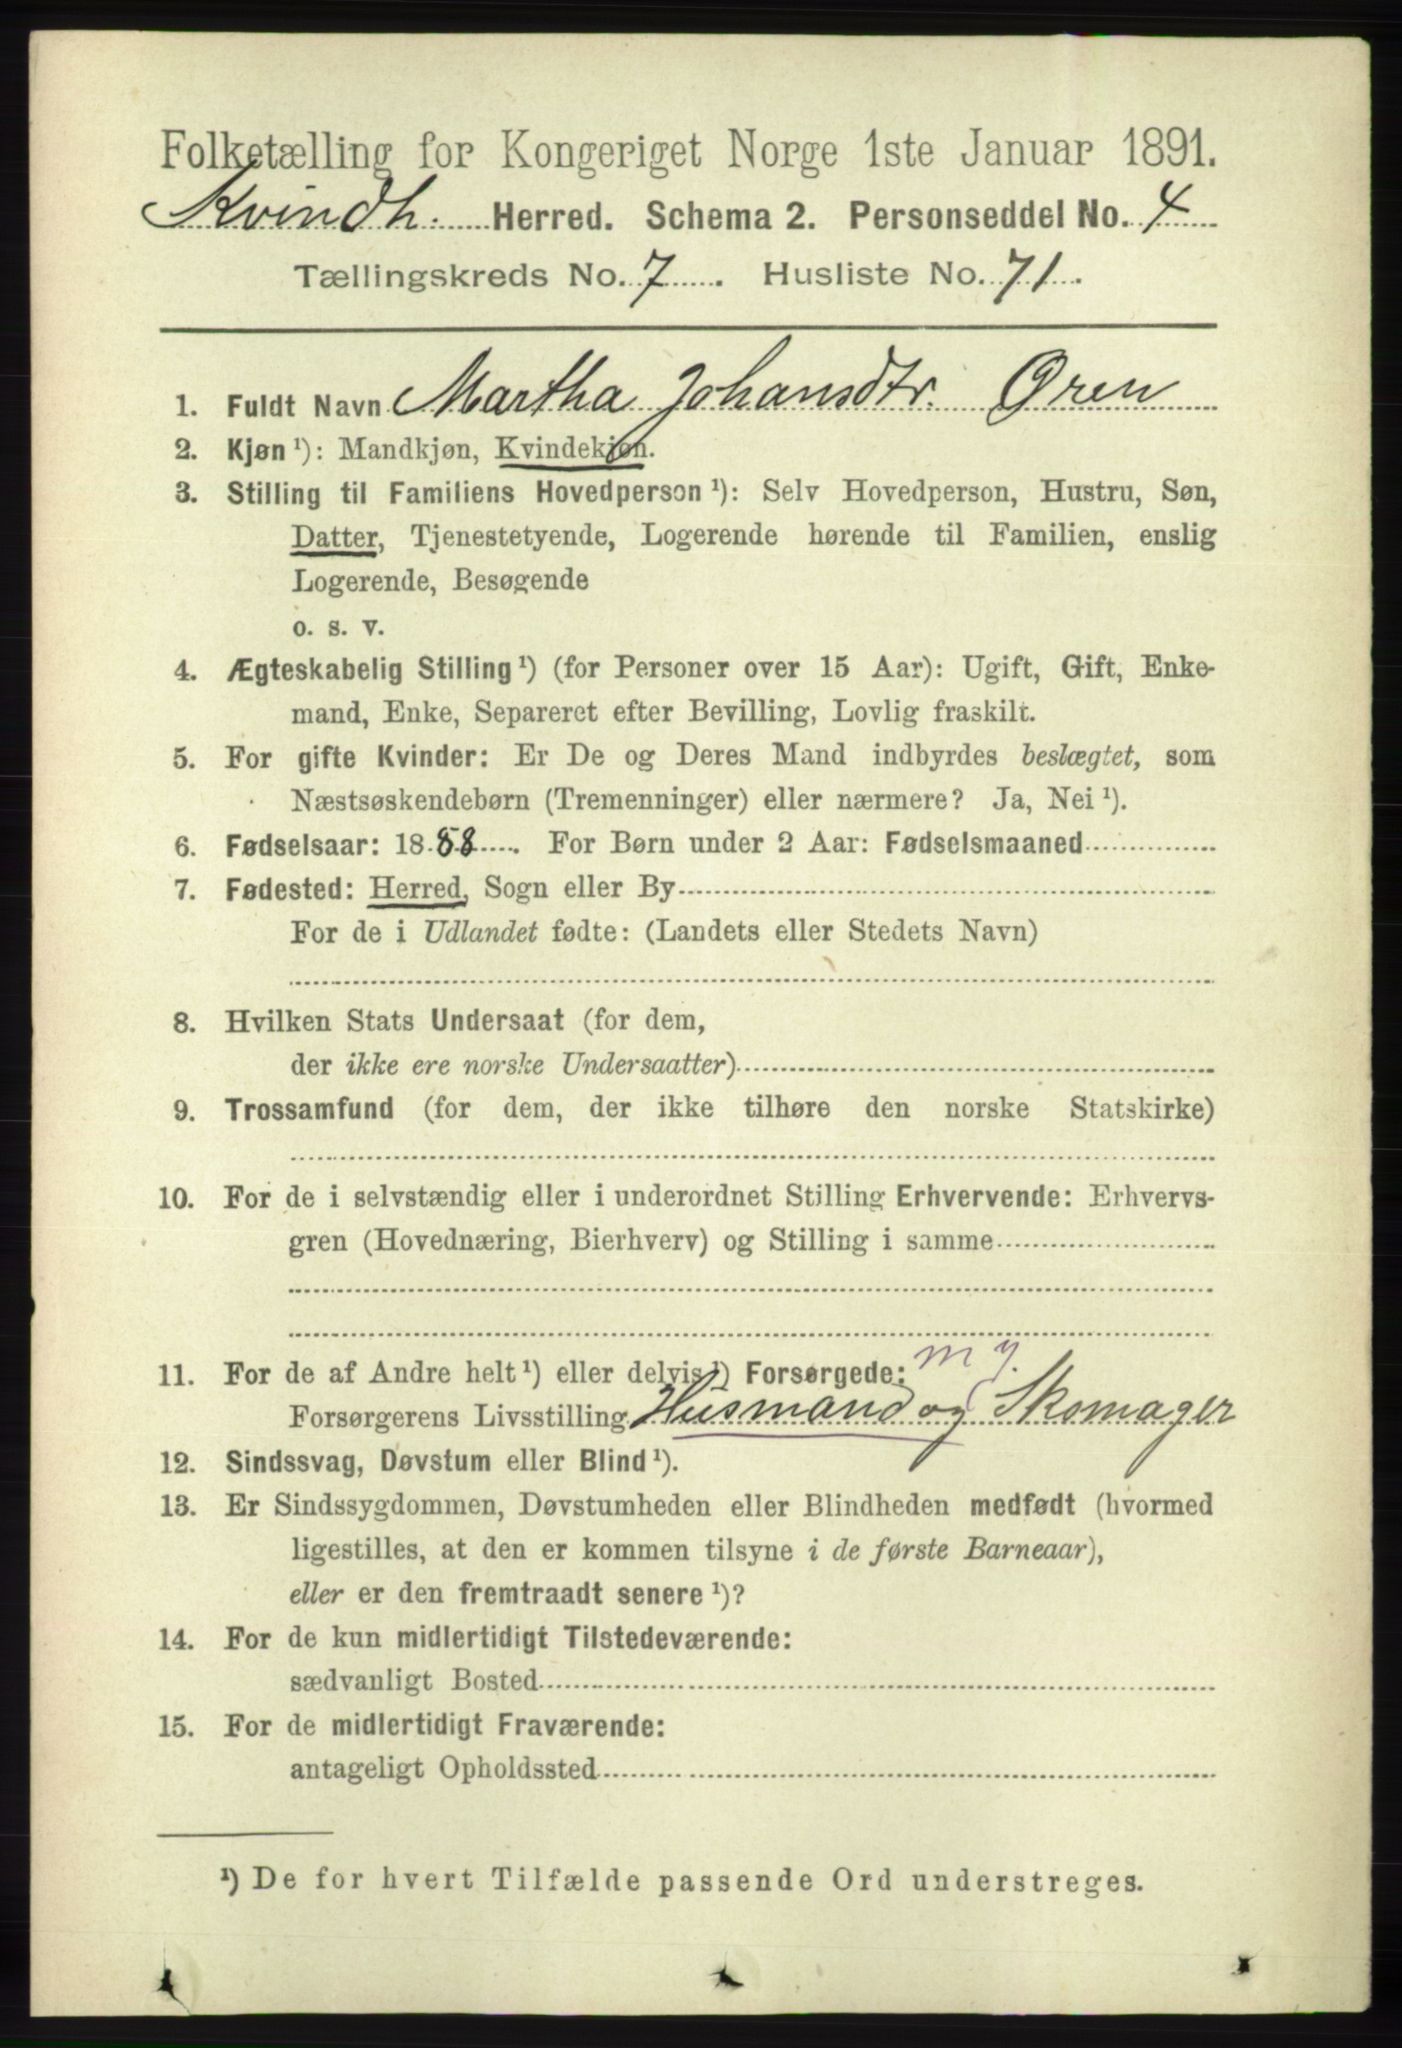 Folketælling for Kongeriget Norge 1ste Januar 1891.
Kvindh. Herred. Schema 2. Personseddel No. 4
Tællingskreds No. 7. Husliste No. 71.
1. Fuldt Navn Martha Johansdtr. Øren
2. Kjøn ¹): Mandkjøn, Kvindekjøn.
3. Stilling til Familiens Hovedperson ¹): Selv Hovedperson, Hustru, Søn,
Datter, Tjenestetyende, Logerende hørende til Familien, enslig
Logerende, Besøgende
o. s. v.
4. Ægteskabelig Stilling ¹) (for Personer over 15 Aar): Ugift, Gift, Enke-
mand, Enke, Separeret efter Bevilling, Lovlig fraskilt.
5. For gifte Kvinder: Er De og Deres Mand indbyrdes beslægtet, som
Næstsøskendebørn (Tremenninger) eller nærmere? Ja, Nei ¹).
6. Fødselsaar: 1888. For Børn under 2 Aar: Fødselsmaaned
7. Fødested: Herred, Sogn eller By
For de i Udlandet fødte: (Landets eller Stedets Navn)
8. Hvilken Stats Undersaat (for dem,
der ikke ere norske Undersaatter)
9. Trossamfund (for dem, der ikke tilhøre den norske Statskirke)
10. For de i selvstændig eller i underordnet Stilling Erhvervende: Erhvervs-
gren (Hovednæring, Bierhverv) og Stilling i samme
11. For de af Andre helt ¹) eller delvis ¹) Forsørgede: m j.
Forsørgerens Livsstilling Husmand og Skomager
12. Sindssvag, Døvstum eller Blind ¹).
13. Er Sindssygdommen, Døvstumheden eller Blindheden medfødt (hvormed
ligestilles, at den er kommen tilsyne i de første Barneaar),
eller er den fremtraadt senere ¹)?
14. For de kun midlertidigt Tilstedeværende:
sædvanligt Bosted
15. For de midlertidigt Fraværende:
antageligt Opholdssted
¹) De for hvert Tilfælde passende Ord understreges.